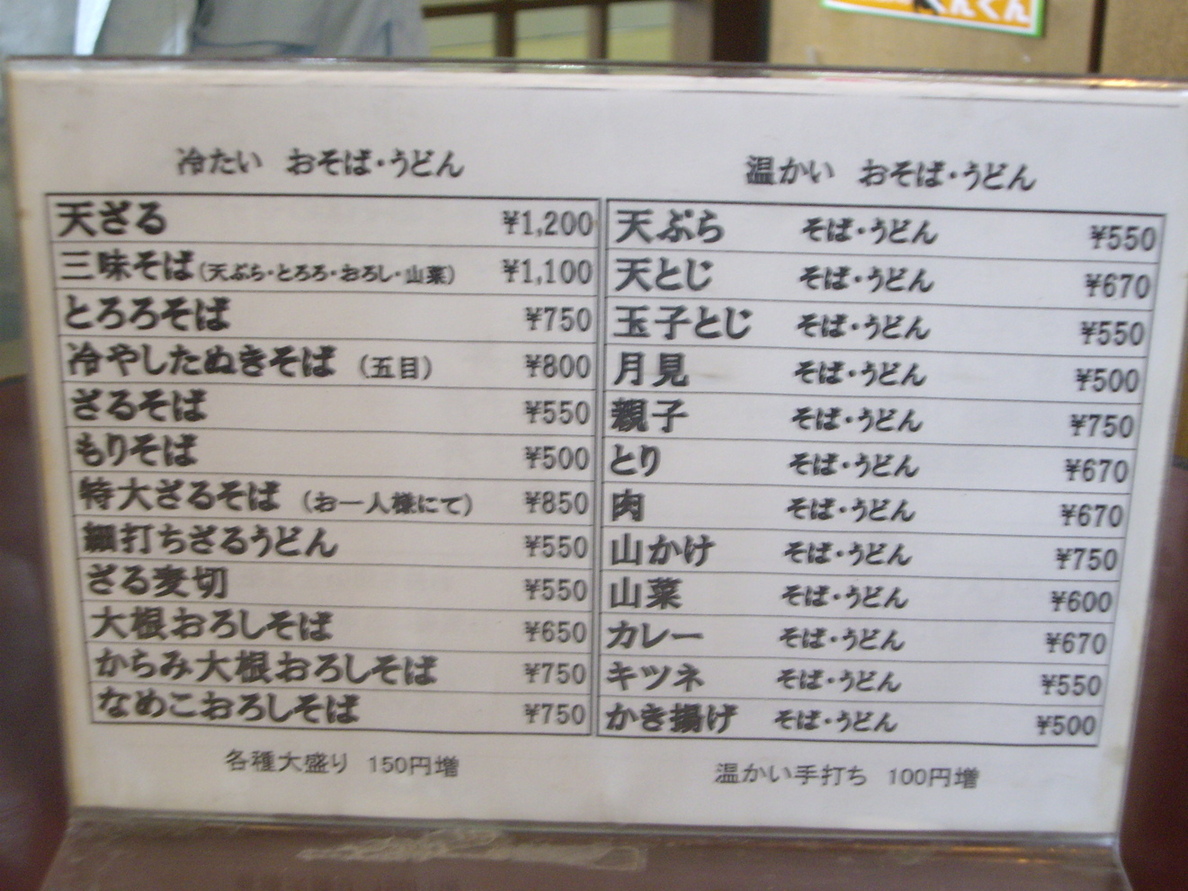 くんくん
冷たい おそば・うどん
天ざる ¥1,200
三味そば(天ぷら・とろろ・おろし・山菜) ¥1,100
とろろそば ¥750
冷やしたぬきそば (五目) ¥800
ざるそば ¥550
もりそば ¥500
特大ざるそば (お一人様にて) ¥850
細打ちざるうどん ¥550
ざる麦切 ¥550
大根おろしそば ¥650
からみ大根おろしそば ¥750
なめこおろしそば ¥750
各種大盛り 150円増
温かい おそば・うどん
天ぷら そば・うどん ¥550
天とじ そば・うどん ¥670
玉子とじ そば・うどん ¥550
月見 そば・うどん ¥500
親子 そば・うどん ¥750
とり そば・うどん ¥670
肉 そば・うどん ¥670
山かけ そば・うどん ¥750
山菜 そば・うどん ¥600
カレー そば・うどん ¥670
キツネ そば・うどん ¥550
かき揚げ そば・うどん ¥500
温かい手打ち 100円増